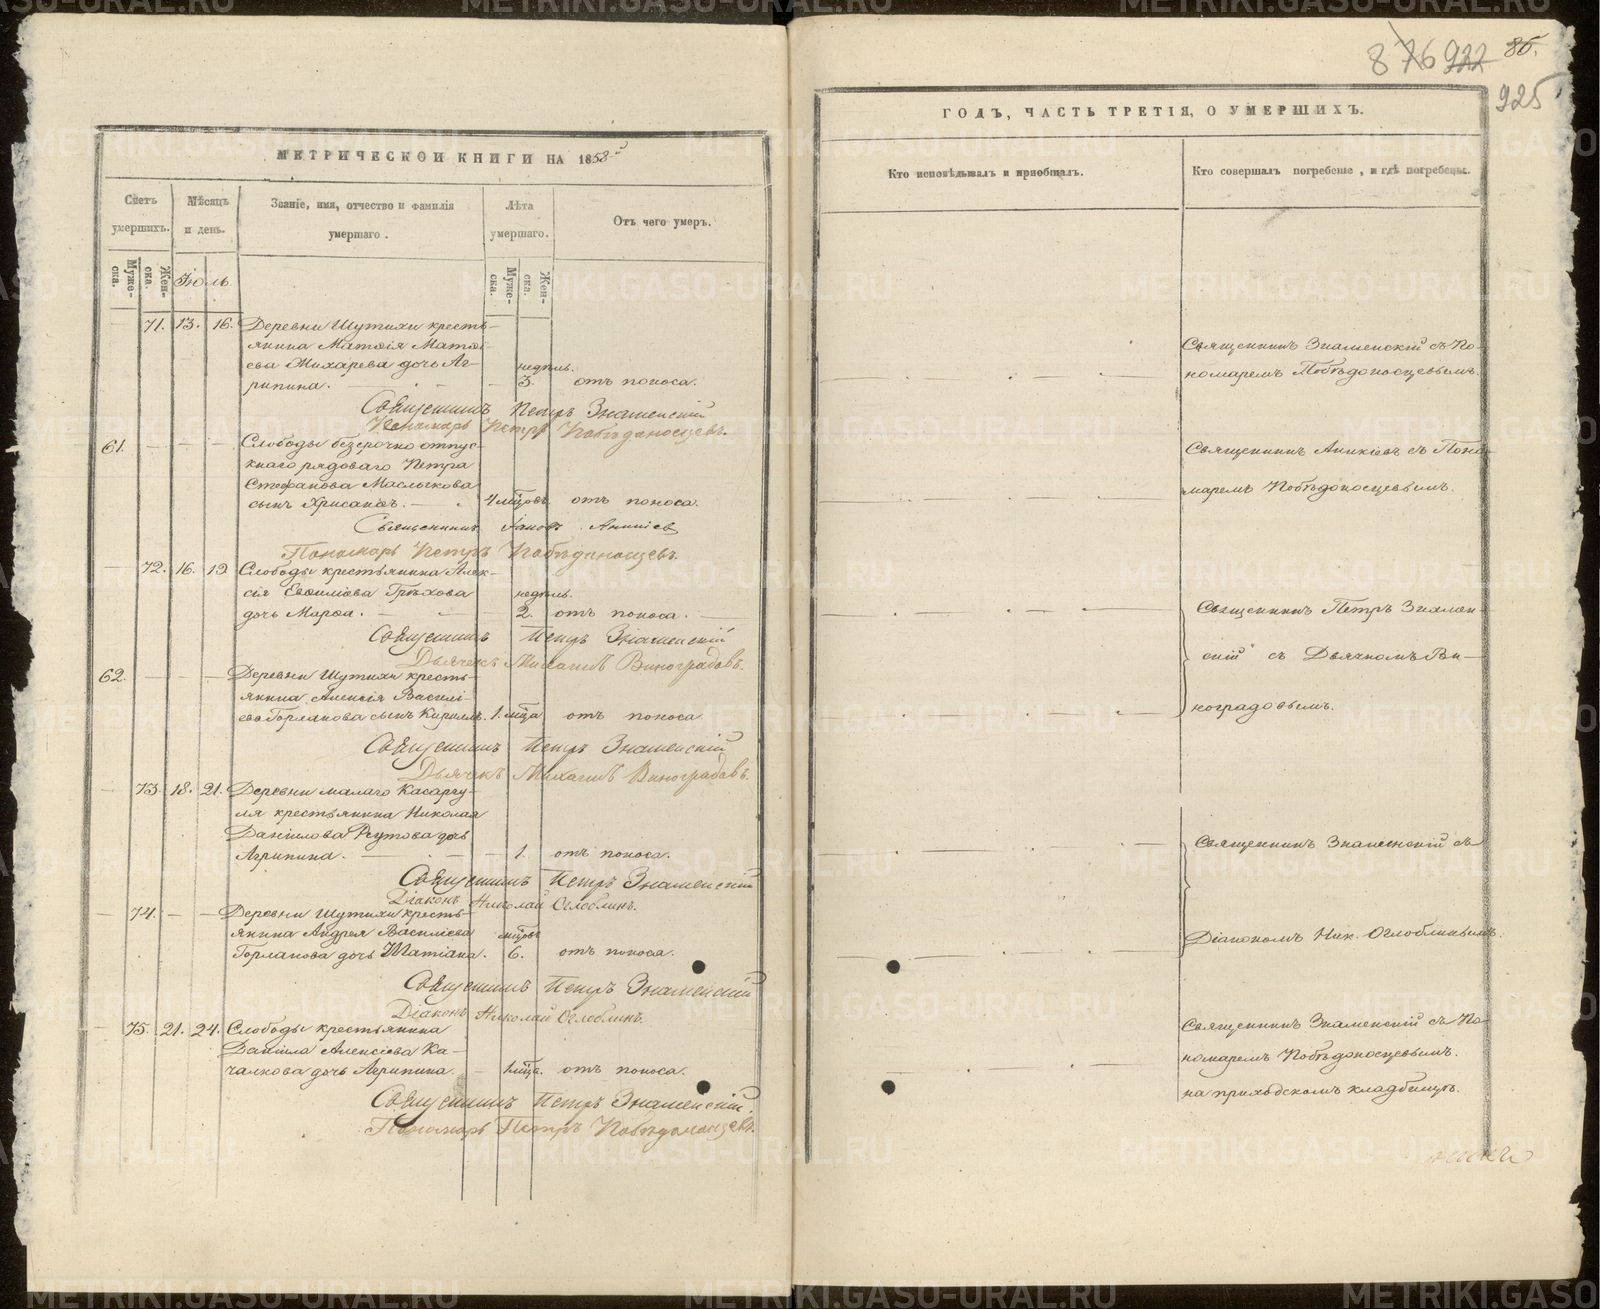 МЕТРИЧЕСКОЙ КНИГИ НА 1858й
Счетъ умершихъ.
Мѣсяцъ и день.
Званіе, имя, отчество и фамилія умершаго.
Лѣта умершаго.
Отъ чего умеръ.
Мужеска.
Женска.
Іюль
Мужеска.
Женска.
71. 13. 16. Деревни Шутихи кресть-
янина Матѳія Матѳі-
ева Жихарева дочь Аг- недѣль.
рипина. 3. отъ поноса.
Священникъ Петръ Знаменскій
Пономарь Петръ Побѣдоносцевъ.
61. Слободы безсрочно отпус-
кнаго рядоваго Петра
Стефанова Маслыкова
сынъ Хрисанѳъ. 4 мѣсцовъ отъ поноса.
Священникъ Іаковъ Аникіев
Пономарь Петръ Побѣданосцевъ.
72. 16. 19. Слободы крестьянина Алек-
сія Евѳиміева Грѣхова недѣль.
дочь Марѳа. 2. отъ поноса.
Священникъ Петръ Знаменскій
Дьячекъ Михаилъ Виноградовъ.
62. Деревни Шутихи кресть-
янина Алексія Василі-
ева Горланова сынъ Кириллъ. 1. мѣца отъ поноса
Священникъ Петръ Знаменскій
Дьячекъ Михаилъ Виноградовъ.
73. 18. 21. Деревни малаго Касаргу-
ля крестьянина Николая
Даніилова Реутова дочь
Агрипина. 1. отъ поноса.
Священникъ Петръ Знаменскій
Діаконъ Николай Оглоблинъ.
74. Деревни Шутихи кресть-
янина Андрея Василіева мѣцъ
Горланова дочь Татіана. 6. отъ поноса.
Священникъ Петръ Знаменскій
Діаконъ Николай Оглоблинъ.
75. 21. 24. Слободы крестьянина
Даніила Алексіева Ка-
чалкова дочь Агрипина. 1 мѣца. отъ поноса.
Священникъ Петръ Знаменскій.
Пономарь Петръ Побѣдоносцевъ.
876 922 86.
925
ГОДЪ, ЧАСТЬ ТРЕТІЯ, О УМЕРШИХЪ.
Кто исповѣдывалъ и пріобщалъ.
Кто совершалъ погребеніе, и гдѣ погребены.
Священникъ Знаменскій съ По-
номаремъ Побѣдоносцевымъ.
Священникъ Аникіевъ съ Поно-
маремъ Побѣдоносцевымъ.
Священникъ Петръ Знамен-
скій съ Дьячкомъ Ви-
ноградовымъ.
Священникъ Знаменскій съ
Діакономъ Ник. Оглоблинымъ.
Священникъ Знаменскій съ По-
номаремъ Побѣдоносцевымъ.
на приходскомъ кладбищѣ.
METRIKI.GASO-URAL.RU